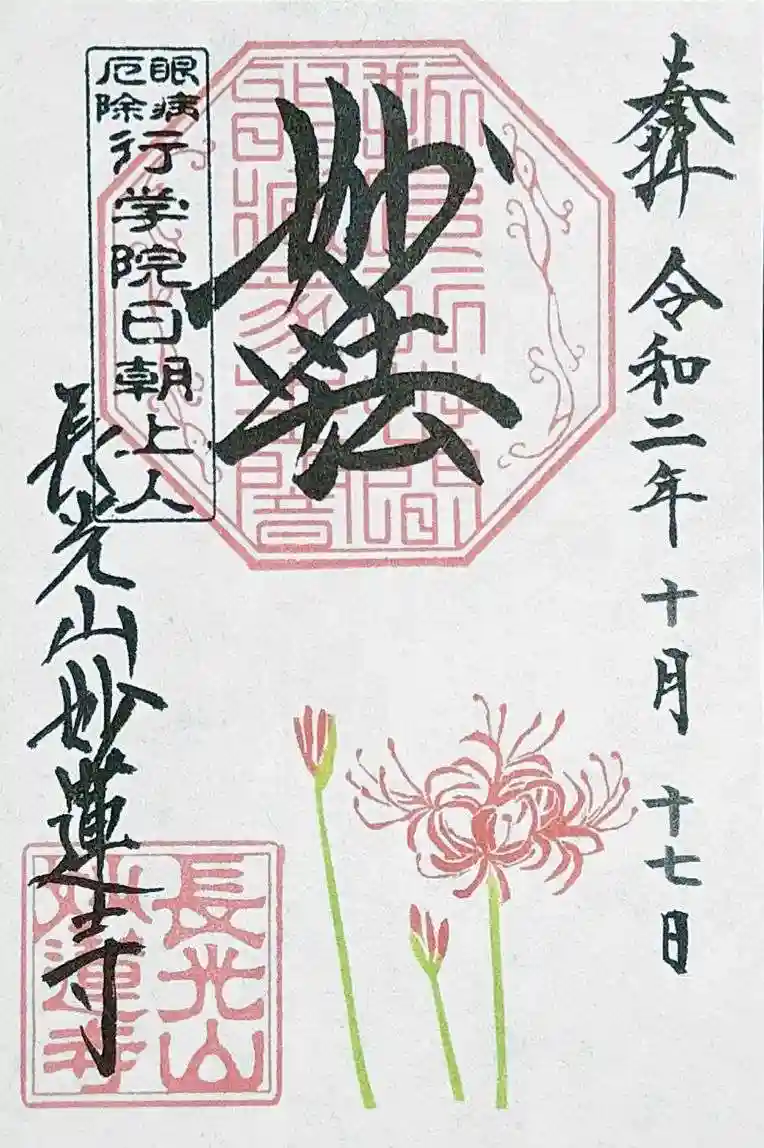 奉拝 令和二年 十月 十七日
妙法
眼病
厄除
行学院日朝上人
長光山妙蓮寺
長光山
妙蓮寺